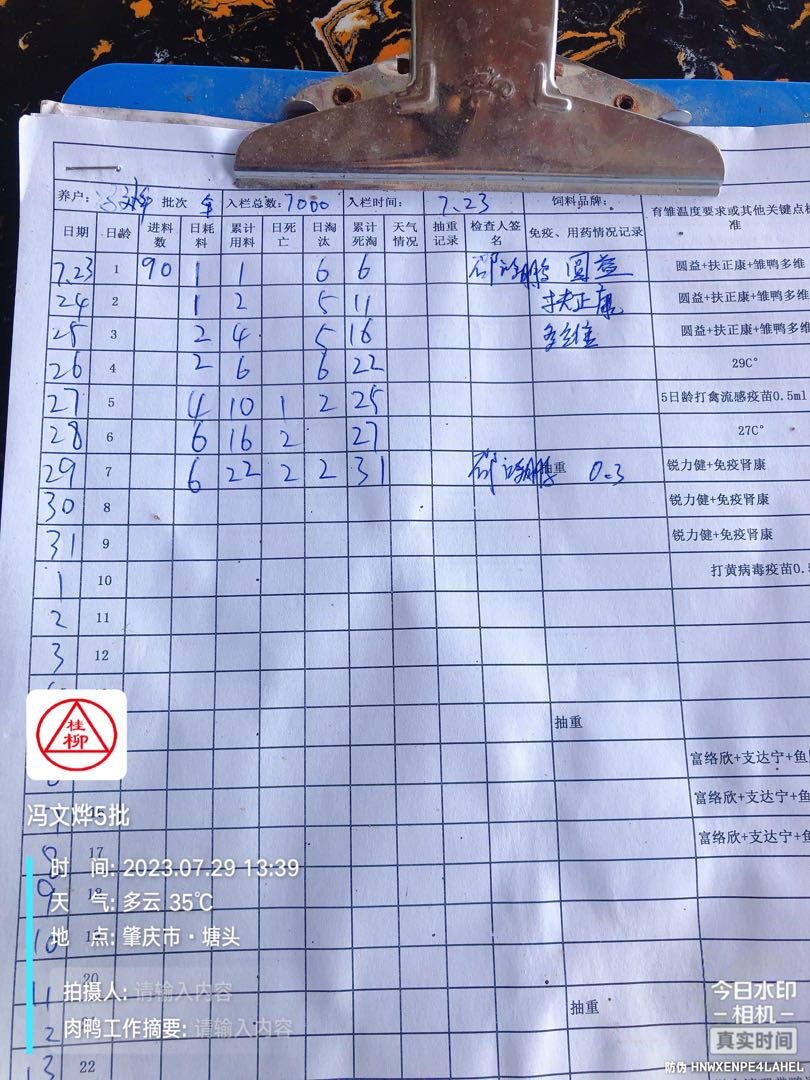 养户: 批次 入栏总数: 7000 入栏时间: 7.23 饲料品牌:
日期 日龄 进料数 日耗料 累计用料 日死亡 日淘汰 累计死淘 天气情况 抽重记录 检查人签名 免疫、用药情况记录 育雏温度要求或其他关键点标准
7.23 1 90 1 1 6 6 圆益 圆益+扶正康+雏鸭多维
24 2 1 2 5 11 扶正康 圆益+扶正康+雏鸭多维
25 3 2 4 5 16 多维 圆益+扶正康+雏鸭多维
26 4 2 6 6 22 29C°
27 5 4 10 1 2 25 5日龄打禽流感疫苗0.5ml
28 6 6 16 2 27 27C°
29 7 6 22 2 2 31 抽重 0.3 锐力健+免疫肾康
30 8 锐力健+免疫肾康
31 9 锐力健+免疫肾康
1 10 打黄病毒疫苗0.5
2 11
3 12
抽重
富络欣+支达宁+鱼
富络欣+支达宁+鱼
8 17 富络欣+支达宁+鱼
9 18
10
20
11 抽重
2
13 22
桂柳
冯文烨5批
时 间: 2023.07.29 13:39
天 气: 多云 35℃
地 点: 肇庆市·塘头
拍摄人: 请输入内容
肉鸭工作摘要: 请输入内容
今日水印
相机
真实时间
防伪 HNWXENPE4LAHEL